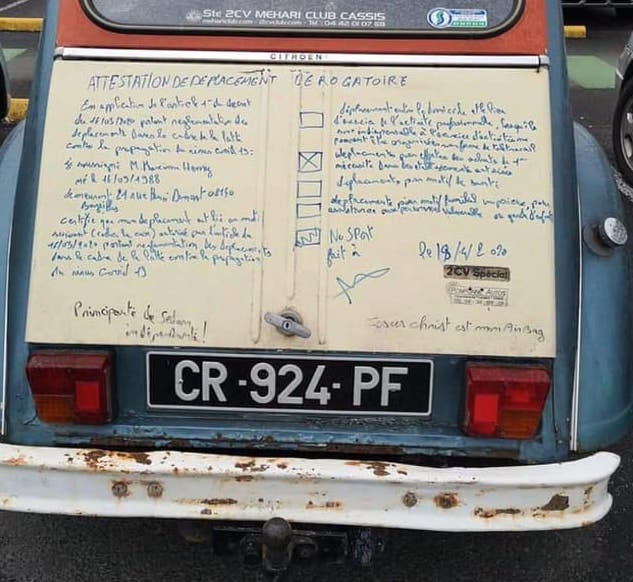 Sté 2CV MEHARI CLUB CASSIS
mehariclub.com - 2cvclub.com - Tel : 04 42 01 07 68
CITROËN
ATTESTATION DE DEPLACEMENT DEROGATOIRE
En application de l'article 1er du decret
du 16/03/2020 portant reglementation des
deplacements dans le cadre de la lutte
contre la propagation du virus covid 19:
Je soussigné M. Maximin Henry
né le 16/09/1988
demeurant 21 rue 08150
certifie que mon deplacement est lié au motif
suivant (cocher la case) autorisé par l'article du
16/03/2020 portant reglementation des deplacements
dans le cadre de la lutte contre la propagation
du virus Covid 19
déplacement entre le domicile et lieu
d'exercice de l'activité professionnelle, lorsqu'ils
sont indispensable à l'exercice d'activités ne
pouvant être organisées sous forme de télétravail
deplacements pour effectuer des achats de 1ère
nécessité dans les établissements autorisés
déplacements pour motif de santé
deplacements pour motif familial impérieux, pour
assistance aux personnes vulnerable ou garde d'enfant
No SPORT
fait à le 18/4/2020
2CV Spécial
Principauté de Sedan
indépendante !
Jesus christ est mon Air Bag
CR-924-PF